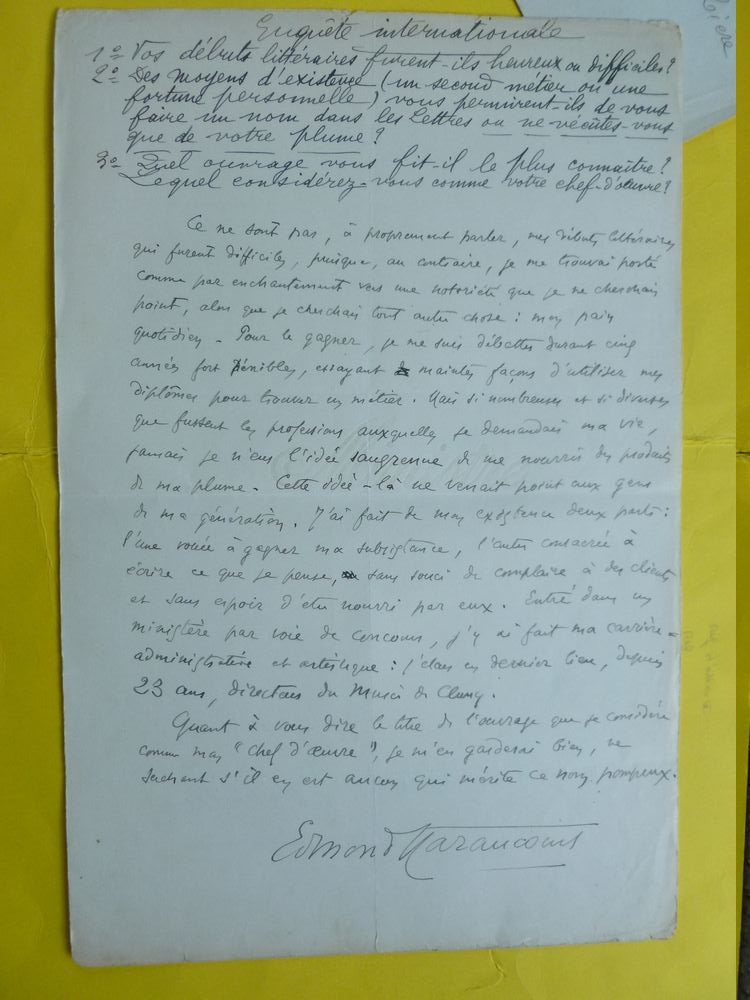 Enquête internationale
1º Vos débuts littéraires furent-ils heureux ou difficiles?
2º Des moyens d'existence (un second métier ou une
fortune personnelle) vous permirent-ils de vous
faire un nom dans les Lettres ou ne vécûtes-vous
que de votre plume?
3º Quel ouvrage vous fit-il le plus connaître?
Lequel considérez-vous comme votre chef-d'œuvre?
Ce ne sont pas, à proprement parler, mes débuts littéraires
qui furent difficiles, puisque, au contraire, je me trouvai porté
comme par enchantement vers une notoriété que je ne cherchais
point, alors que je cherchais tout autre chose : mon pain
quotidien. Pour le gagner, je me suis débattu durant cinq
années fort pénibles, essayant maintes façons d'utiliser mes
diplômes pour trouver un métier. Mais si nombreuses et si diverses
que fussent les professions auxquelles je demandais ma vie,
jamais je n'eus l'idée saugrenue de me nourrir des produits
de ma plume. Cette idée-là ne venait point aux gens
de ma génération. J'ai fait de mon existence deux parts :
l'une vouée à gagner ma subsistance, l'autre consacrée à
écrire ce que je pense, sans souci de complaire à des clients
et sans espoir d'être nourri par eux. Entré dans un
ministère par voie de concours, j'y ai fait ma carrière
administrative et artistique : en dernier lieu, depuis
23 ans, directeur du Musée de Cluny.
Quant à vous dire le titre de l'ouvrage que je considère
comme mon "chef d'œuvre", je m'en garderai bien, ne
sachant s'il en est aucun qui mérite ce nom pompeux.
Edmond Haraucourt